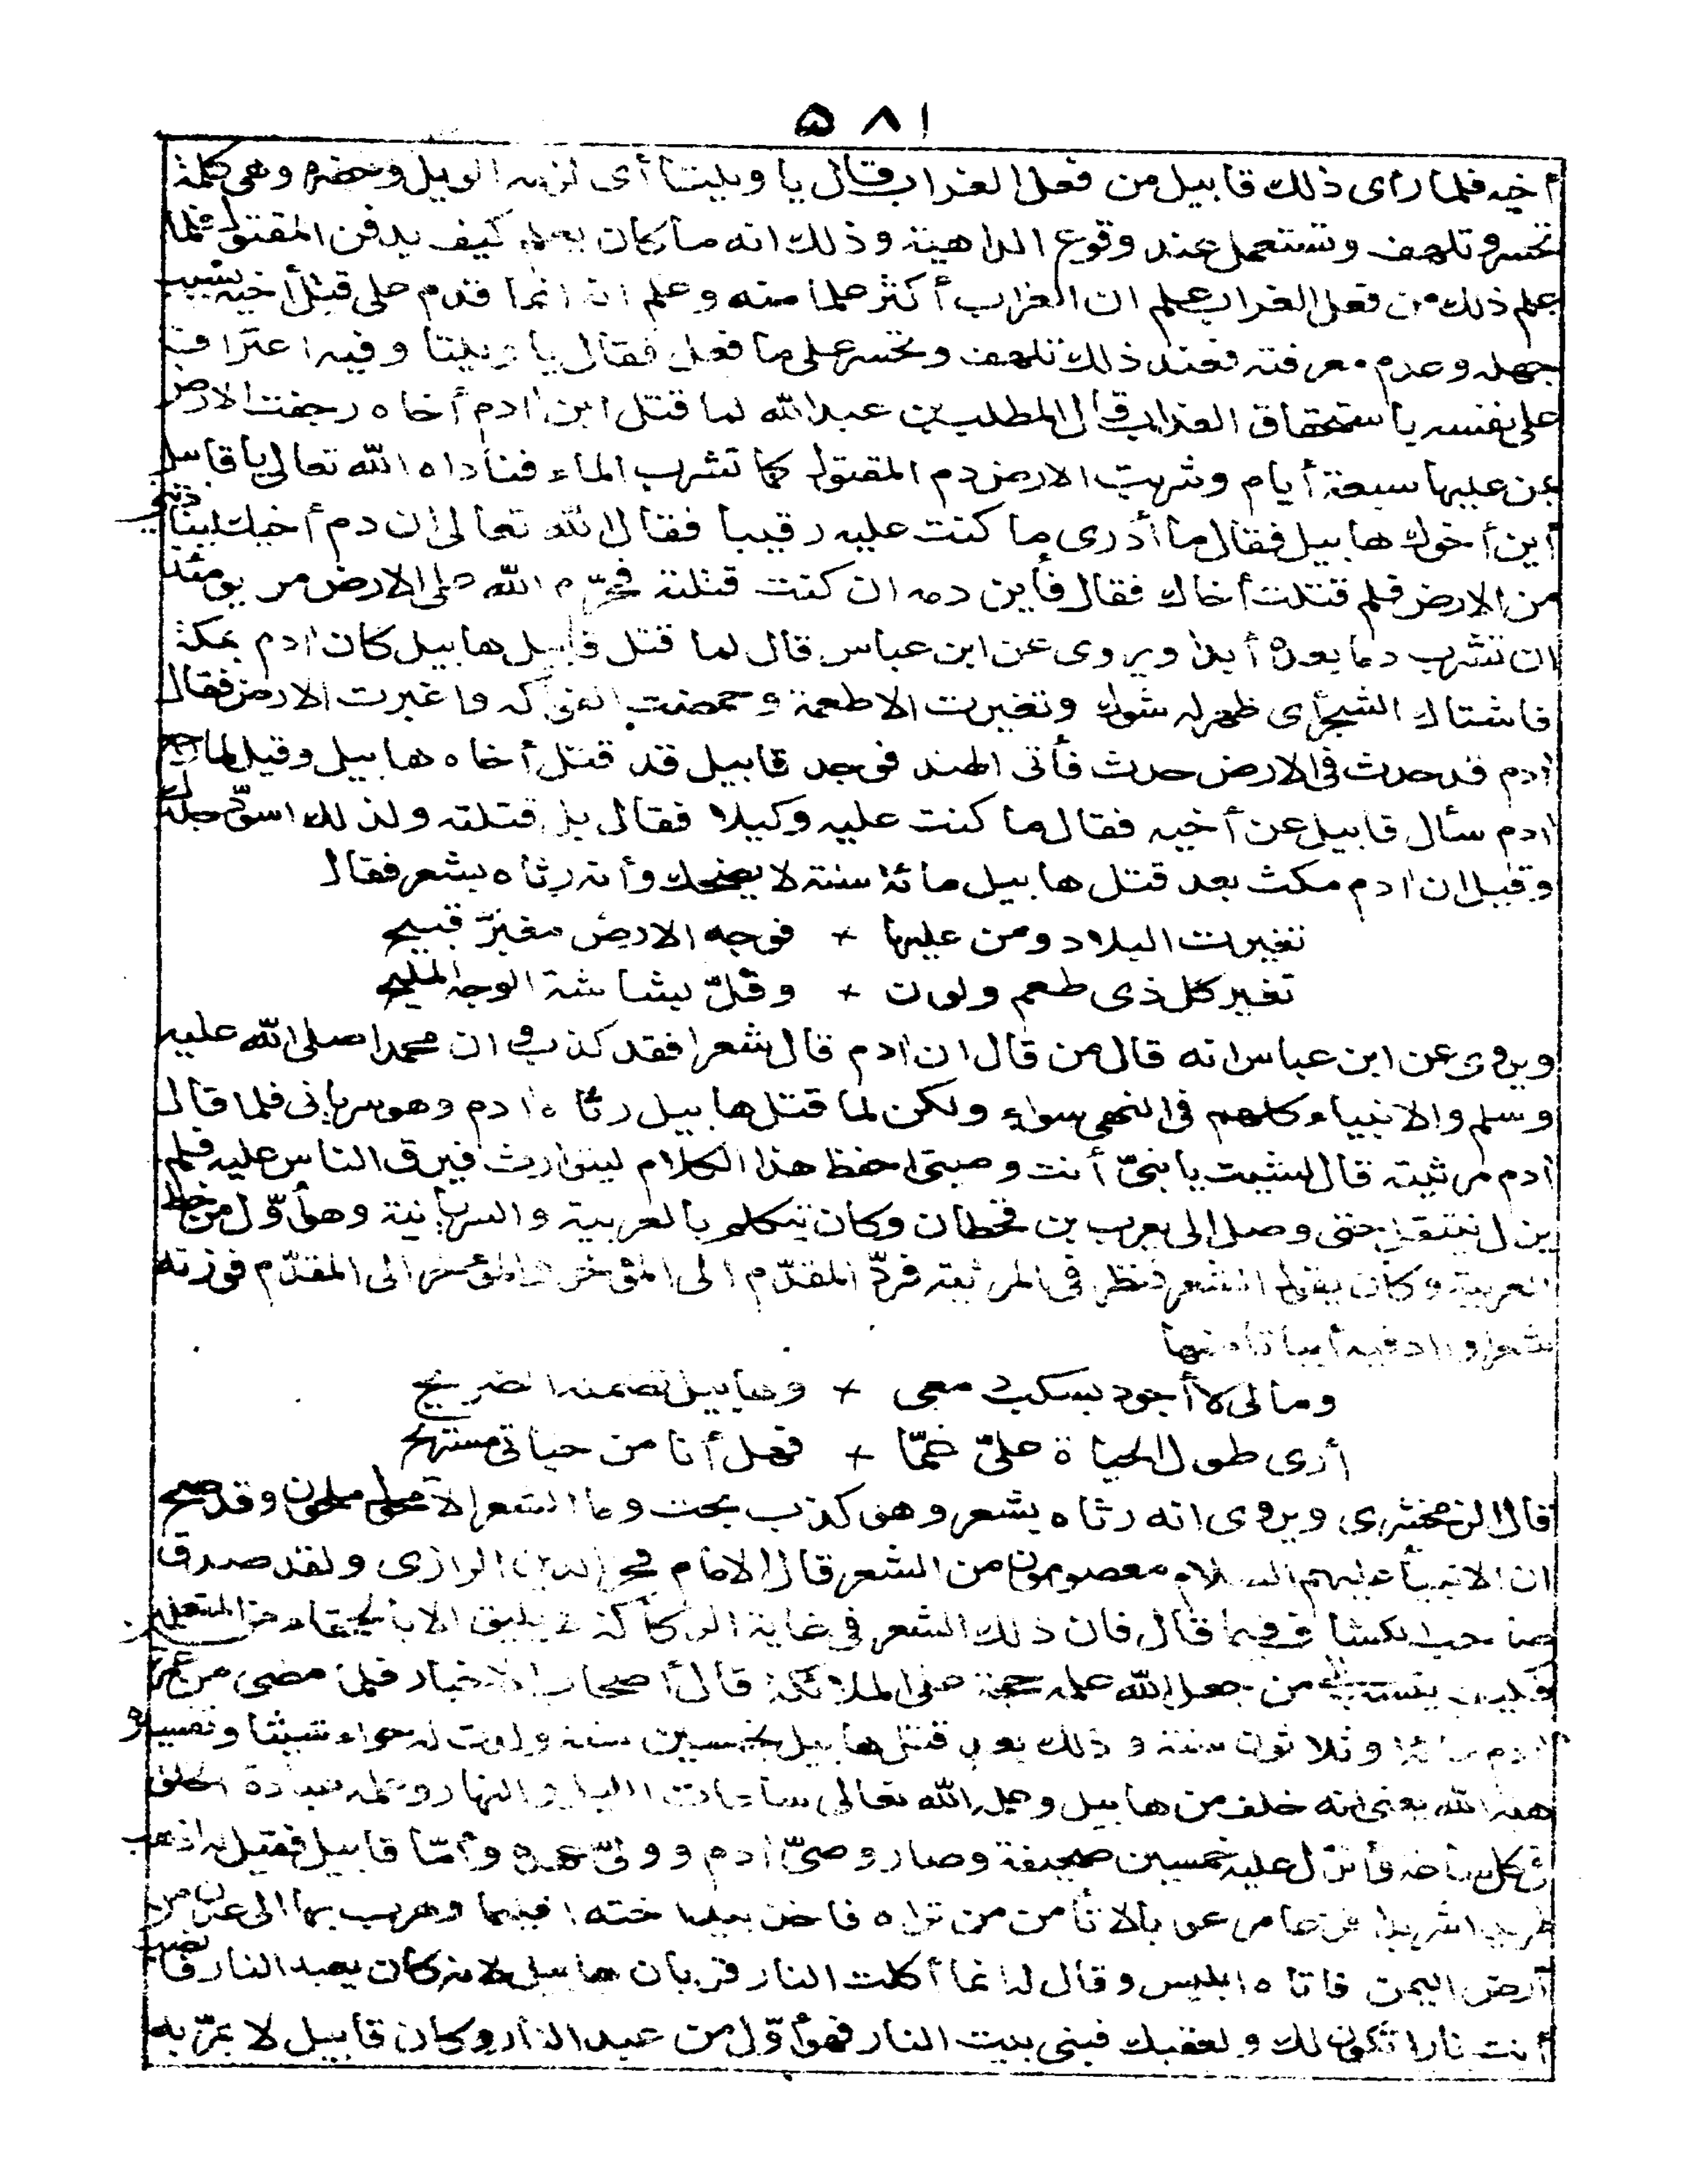 ٥٨١
أخيه فلما رأى ذلك قابيل من فعل الغراب قال يا ويلتا أى لزمه الويل وحضره وهى كلمة
تحسر وتلهف وتستعمل عند وقوع الداهية وذلك انه ما كان يعلم كيف يدفن المقتول فلما
علم ذلك من فعل الغراب علم ان الغراب أكثر علما منه وعلم انه انما قدم على قتل أخيه بسبب
جهله وعدم معرفته فعند ذلك تلهف وتحسر على ما فعل فقال يا ويلتا وفيه اعتراف
على نفسه باستحقاق العذاب قال المطلب بن عبد الله لما قتل ابن ادم أخاه رجفت الارض
بمن عليها سبعة أيام وشربت الارض دم المقتول كما تشرب الماء فناداه الله تعالى يا قابيل
أين أخوك هابيل فقال ما أدرى ما كنت عليه رقيبا فقال الله تعالى ان دم أخيك ليناديني
من الارض فلم قتلت أخاك فقال فأين دمه ان كنت قتلته فحرّم الله على الارض من يومئذ
ان تشرب دما بعده أبدا ويروى عن ابن عباس قال لما قتل قابيل هابيل كان ادم بمكة
فاشتاك الشجر أى ظهر له شوك وتغيرت الاطعمة وحمضت الفواكه واغبرت الارض فقال
ادم قد حدث فى الارض حدث فأتى الهند فوجد قابيل قد قتل أخاه هابيل وقيل لما رجع
ادم سأل قابيل عن أخيه فقال ما كنت عليه وكيلا فقال بل قتلته ولذلك اسودّ جلدك
وقيل ان ادم مكث بعد قتل هابيل مائة سنة لا يضحك وأنه رثاه بشعر فقال
تغيرت البلاد ومن عليها + فوجه الارض مغبرّ قبيح
تغير كل ذى طعم ولون + وقلّ بشاشة الوجه المليح
ويروى عن ابن عباس انه قال من قال ان ادم قال شعرا فقد كذب وان محمدا صلى الله عليه
وسلم والانبياء كلهم فى النهى سواء ولكن لما قتل هابيل رثاه ادم وهو سريانى فلما قال
ادم مرثيته قال لشيث يا بنىّ أنت وصيى احفظ هذا الكلام ليتوارث فيرق الناس عليه فلم
يزل ينتقل حتى وصل الى يعرب بن قحطان وكان يتكلم بالعربية والسريانية وهو أوّل من خط
العربية وكان يقول الشعر فنظر فى المرثية فردّ المقدّم الى المؤخر والمؤخر الى المقدّم فوزنه
شعرا وزاد فيه أبياتا منها
ومالى لا أجود بسكب دمعى + وهابيل تضمنه الضريح
أرى طول الحياة علىّ غمّا + فهل أنا من حياتى مستريح
قال الزمخشرى ويروى انه رثاه بشعر وهو كذب بحت وما الشعر الا منحول ملحون وقد صح
ان الانبياء عليهم السلام معصومون من الشعر قال الامام فخر الدين الرازى ولقد صدق
صاحب الكشاف فيما قال فان ذلك الشعر فى غاية الركاكة لا يليق الا بالحمقاء من المتعلمين
فكيف ينسب الى من جعل الله علمه حجة على الملائكة قال أصحاب الاخبار فلما مضى من عمر
ادم مائة وثلاثون سنة وذلك بعد قتل هابيل بخمسين سنة ولدت له حواء شيثا وتفسيره
هبة الله يعنى انه خلف من هابيل وعلمه الله تعالى ساعات الليل والنهار وعلمه عبادة الخلق
فى كل ساعة وأنزل عليه خمسين صحيفة وصار وصىّ ادم وولىّ عهده وأمّا قابيل فقيل له اذهب
طريدا شريدا فزعا مرعوبا لا تأمن من تراه فاخذ بيد اخته اقليما وهرب بها الى عدن من
أرض اليمن فاتاه ابليس وقال له انما أكلت النار قربان هابيل لانه كان يعبد النار فانصب
أنت نارا تكون لك ولعقبك فبنى بيت النار فهو أوّل من عبد النار وكان قابيل لا يمرّ به